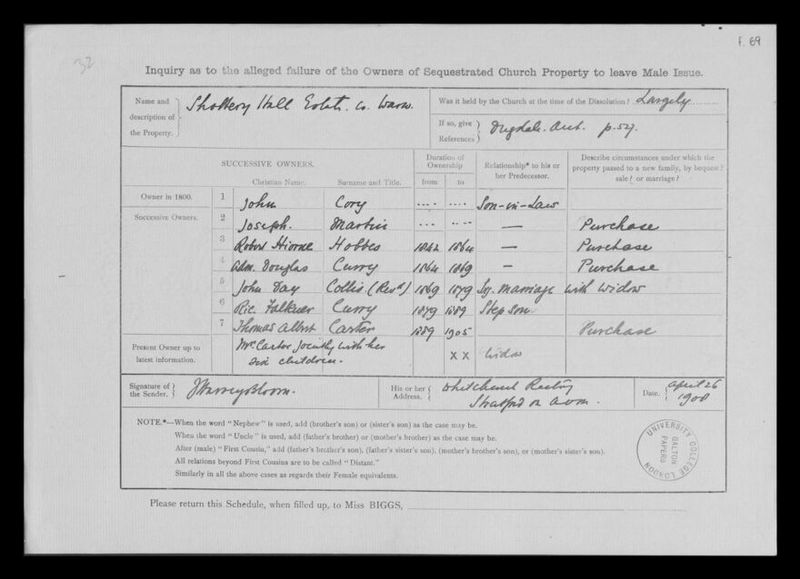 F. 69
32
Inquiry as to the alleged failure of the Owners of Sequestrated Church Property to leave Male Issue.
Name and description of the Property. Shottery Hall Estate. Co. Warw.
Was it held by the Church at the time of the Dissolution? Largely
If so, give References Dugdale. Ant. p. 527.
SUCCESSIVE OWNERS.
Christian Name. Surname and Title.
Duration of Ownership from to
Relationship* to his or her Predecessor.
Describe circumstances under which the property passed to a new family, by bequest? sale? or marriage?
Owner in 1800. 1 John Cory .... .... Son-in-Law
Successive Owners. 2 Joseph. Martin .... .... — Purchase
3 Robert Hiorne Hobbes 1842 1864 — Purchase
4 Adm. Douglas Curry 1864 1869 — Purchase
5 John Day Collis (Revd) 1869 1879 by. marriage with widow
6 Ric. Falkner Curry 1879 1889 Step son
7 Thomas Albert Carter 1889 1905 Purchase
Present Owner up to latest information. Mrs Carter jointly with her six children. X X Widow
Signature of the Sender. J Harvey Bloom.
His or her Address. Whitchurch Rectory Stratford on Avon.
Date. April 26 1908
NOTE.*—When the word "Nephew" is used, add (brother's son) or (sister's son) as the case may be.
When the word "Uncle" is used, add (father's brother) or (mother's brother) as the case may be.
After (male) "First Cousin," add (father's brother's son), (father's sister's son), (mother's brother's son), or (mother's sister's son).
All relations beyond First Cousins are to be called "Distant."
Similarly in all the above cases as regards their Female equivalents.
UNIVERSITY COLLEGE LONDON
GALTON PAPERS
Please return this Schedule, when filled up, to Miss BIGGS,